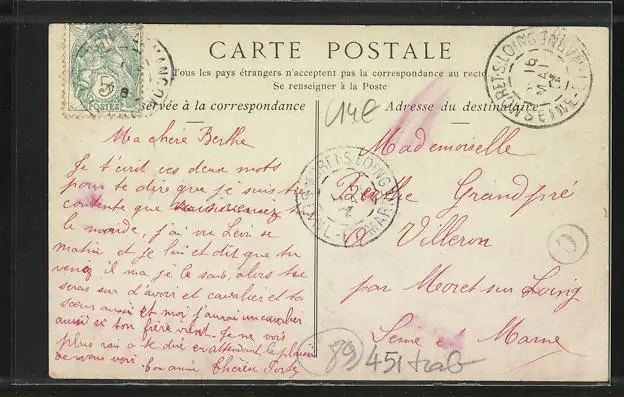 CARTE POSTALE
Tous les pays étrangers n'acceptent pas la correspondance au recto
Se renseigner à la Poste
servée à la correspondance
Adresse du destinataire
5
POSTES
14€
MORET-S-LOING
SEINE-ET-MARNE
16
MAI
Ma chère Berthe
Je t'écrit ces deux mots
pour te dire que je suis très
contente que
le monde, j'ai vu Levi se
matin et je lui et dit que tu
venez il ma je le sais, alors tu
seras sur d'avoir et cavalier et ta
sœur aussi et moi j'aurai un cavalier
aussi si ton frère vient. Je ne vois
plus rien a te dire en attendant le plaisir
de vous voir. ton amie Thérèse
Mademoiselle
Berthe Grandpré
à Villeron
par Moret sur Loing
Seine et Marne
MORET-S-LOING
89/451